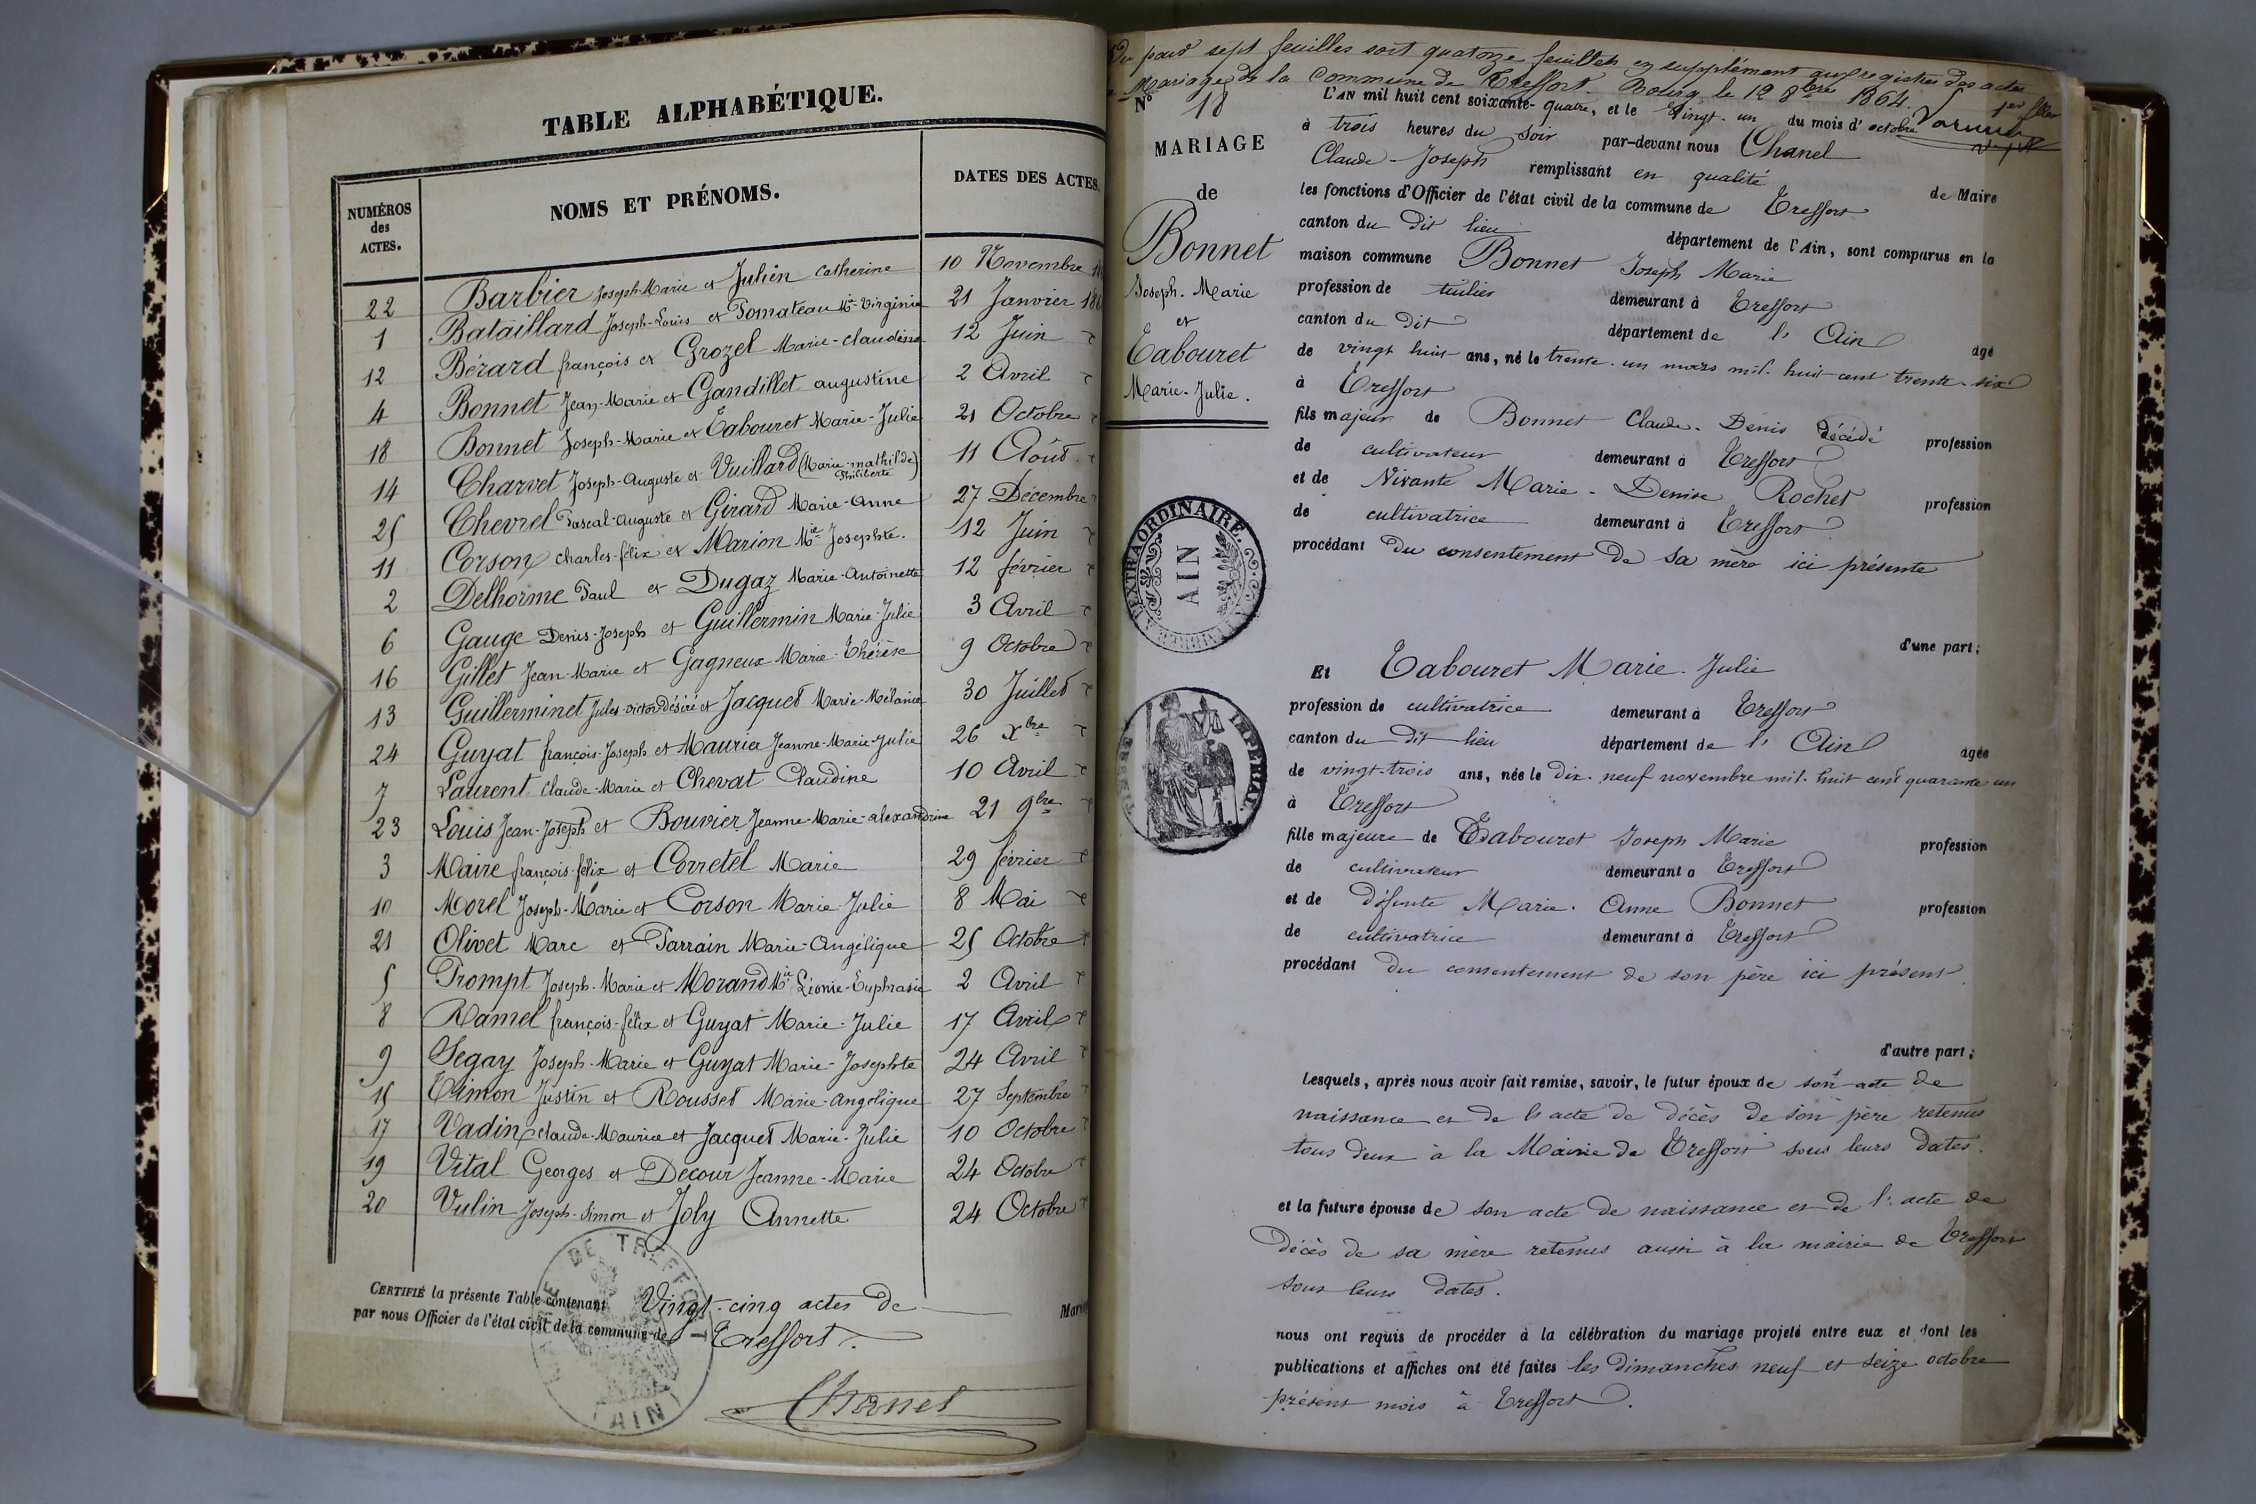 TABLE ALPHABÉTIQUE.
NUMÉROS des ACTES. NOMS ET PRÉNOMS. DATES DES ACTES.
22 Barbier Joseph-Marie et Julien Catherine 10 Novembre
1 Bataillard Joseph-Louis et Pomateau Mie-Virginie 21 Janvier
12 Bérard françois et Grozel Marie-claudine 12 Juin
4 Bonnet Jean-Marie et Gandillet augustine 2 Avril
18 Bonnet Joseph-Marie et Tabouret Marie-Julie 21 Octobre
14 Charvet Joseph-Auguste et Vuillard (Marie-mathilde Philiberte) 11 Août
25 Chevrel Pascal-Auguste et Girard Marie-Anne 27 Décembre
11 Corson charles-félix et Marion Mie Josephte. 12 Juin
2 Delhorme Paul et Dugaz Marie-Antoinette 12 février
6 Gauge Denis-Joseph et Guillermin Marie-Julie 3 Avril
16 Gillet Jean-Marie et Gagneux Marie-Thérèse 9 Octobre
13 Guillerminet Jules-victor-désiré et Jacquet Marie-Mélanie 30 Juillet
24 Guyat françois-Joseph et Maurier Jeanne-Marie-Julie 26 Xbre
7 Laurent Claude-Marie et Chevat Claudine 10 Avril
23 Louis Jean-Joseph et Bouvier Jeanne-Marie-alexandrine 21 9bre
3 Maire françois-félix et Corretel Marie 29 février
10 Morel Joseph-Marie et Corson Marie-Julie 8 Mai
21 Olivet Marc et Parrain Marie-Angélique 25 Octobre
5 Prompt Joseph-Marie et Morand Mie Léonie-Euphrasie 2 Avril
8 Ramel françois-félix et Guyat Marie-Julie 17 Avril
9 Segay Joseph-Marie et Guyat Marie-Josephte 24 Avril
15 Timon Justin et Rousset Marie-Angélique 27 Septembre
17 Vadin Claude-Maurice et Jacquet Marie-Julie 10 Octobre
19 Vital Georges et Decour Jeanne-Marie 24 Octobre
20 Vulin Joseph-Simon et Joly Annette 24 Octobre
CERTIFIÉ la présente Table contenant Vingt-cinq actes de
par nous Officier de l'état civil de la commune de Treffort.
DE TREFFORT
(AIN)
Chanel
pour sept feuilles soit quatorze feuillets en supplément aux registres des actes
Mariages de la Commune de Treffort. Bourg, le 12 8bre 1864.
N° 18
MARIAGE
de
Bonnet
Joseph-Marie
et
Tabouret
Marie-Julie.
EXTRAORDINAIRE.
AIN
IMPERIAL.
L'AN mil huit cent soixante-quatre, et le Vingt-un du mois d'octobre
à trois heures du soir par-devant nous Chanel
Claude-Joseph remplissant en qualité de Maire
les fonctions d'Officier de l'état civil de la commune de Treffort
canton du dit lieu département de l'Ain, sont comparus en la
maison commune Bonnet Joseph Marie
profession de tuilier demeurant à Treffort
canton du dit département de l'Ain agé
de vingt huit ans, né le trente-un mars mil-huit-cent trente-six
à Treffort
fils majeur de Bonnet Claude-Denis décédé profession
de cultivateur demeurant à Treffort
et de Vivante Marie-Denise Rochet profession
de cultivatrice demeurant à Treffort
procédant du consentement de sa mère ici présente
d'une part;
Et Tabouret Marie-Julie
profession de cultivatrice demeurant à Treffort
canton du dit lieu département de l'Ain agée
de vingt-trois ans, née le dix-neuf novembre mil-huit cent quarante un
à Treffort
fille majeure de Tabouret Joseph Marie profession
de cultivateur demeurant à Treffort
et de défunte Marie-Anne Bonnet profession
de cultivatrice demeurant à Treffort
procédant du consentement de son père ici présent
d'autre part;
Lesquels, après nous avoir fait remise, savoir, le futur époux de son acte de
naissance et de l'acte de décès de son père retenus
tous deux à la Mairie de Treffort sous leurs dates.
et la future épouse de son acte de naissance et de l'acte de
décès de sa mère retenus aussi à la mairie de Treffort
sous leurs dates.
nous ont requis de procéder à la célébration du mariage projeté entre eux et dont les
publications et affiches ont été faites les dimanches neuf et seize octobre
présent mois à Treffort.